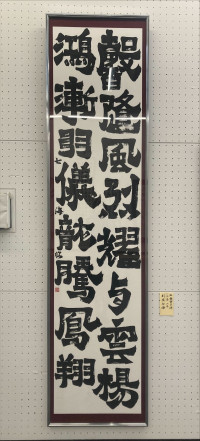 聲隆風烈耀与雲楊
鴻漸羽儀龍騰鳳翔